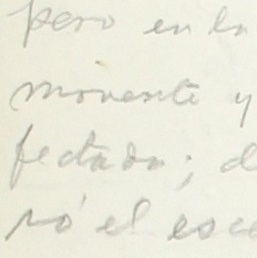 pero en la
movente y
fectada; d
ró el esce